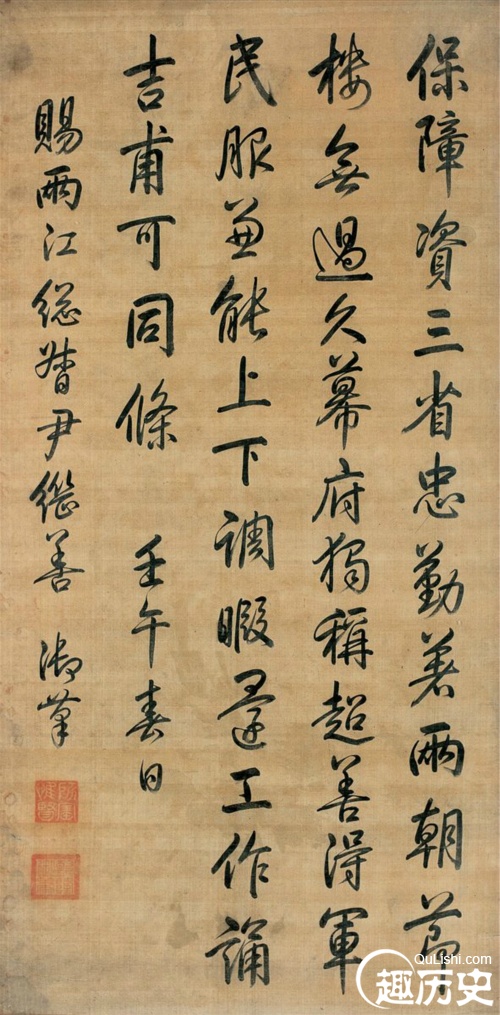 保障資三省忠勤著兩朝節
樓無過久幕府獨稱超善得軍
民服兼能上下調暇還工作誦
吉甫可同條 壬午春日
賜兩江總督尹繼善 御筆
QuLishi.com
趣历史